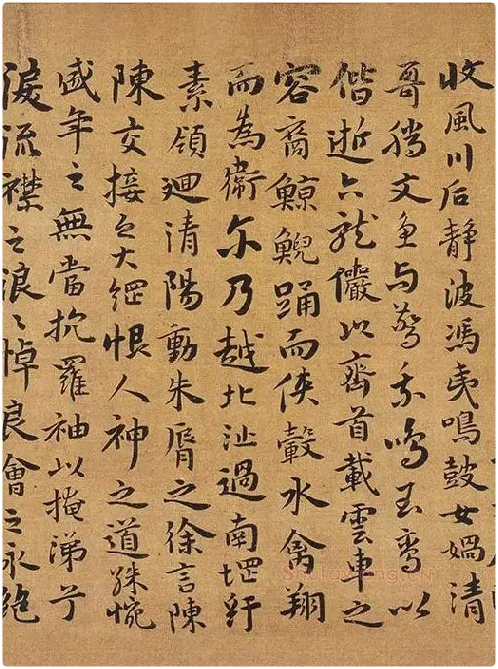 收風川后静波馮夷鳴鼓女媧清
哥騰文魚与警乘鳴玉鸞以
偕逝六龍儼以齊首載雲車之
容裔鯨鯢踊而俠轂水禽翔
而為衛尓乃越北沚過南堽紆
素領廻清陽動朱脣之徐言陳
陳交接之大綱恨人神之道殊惋
盛年之無當抗羅袖以掩涕兮
淚流襟之浪〻悼良會之永絶